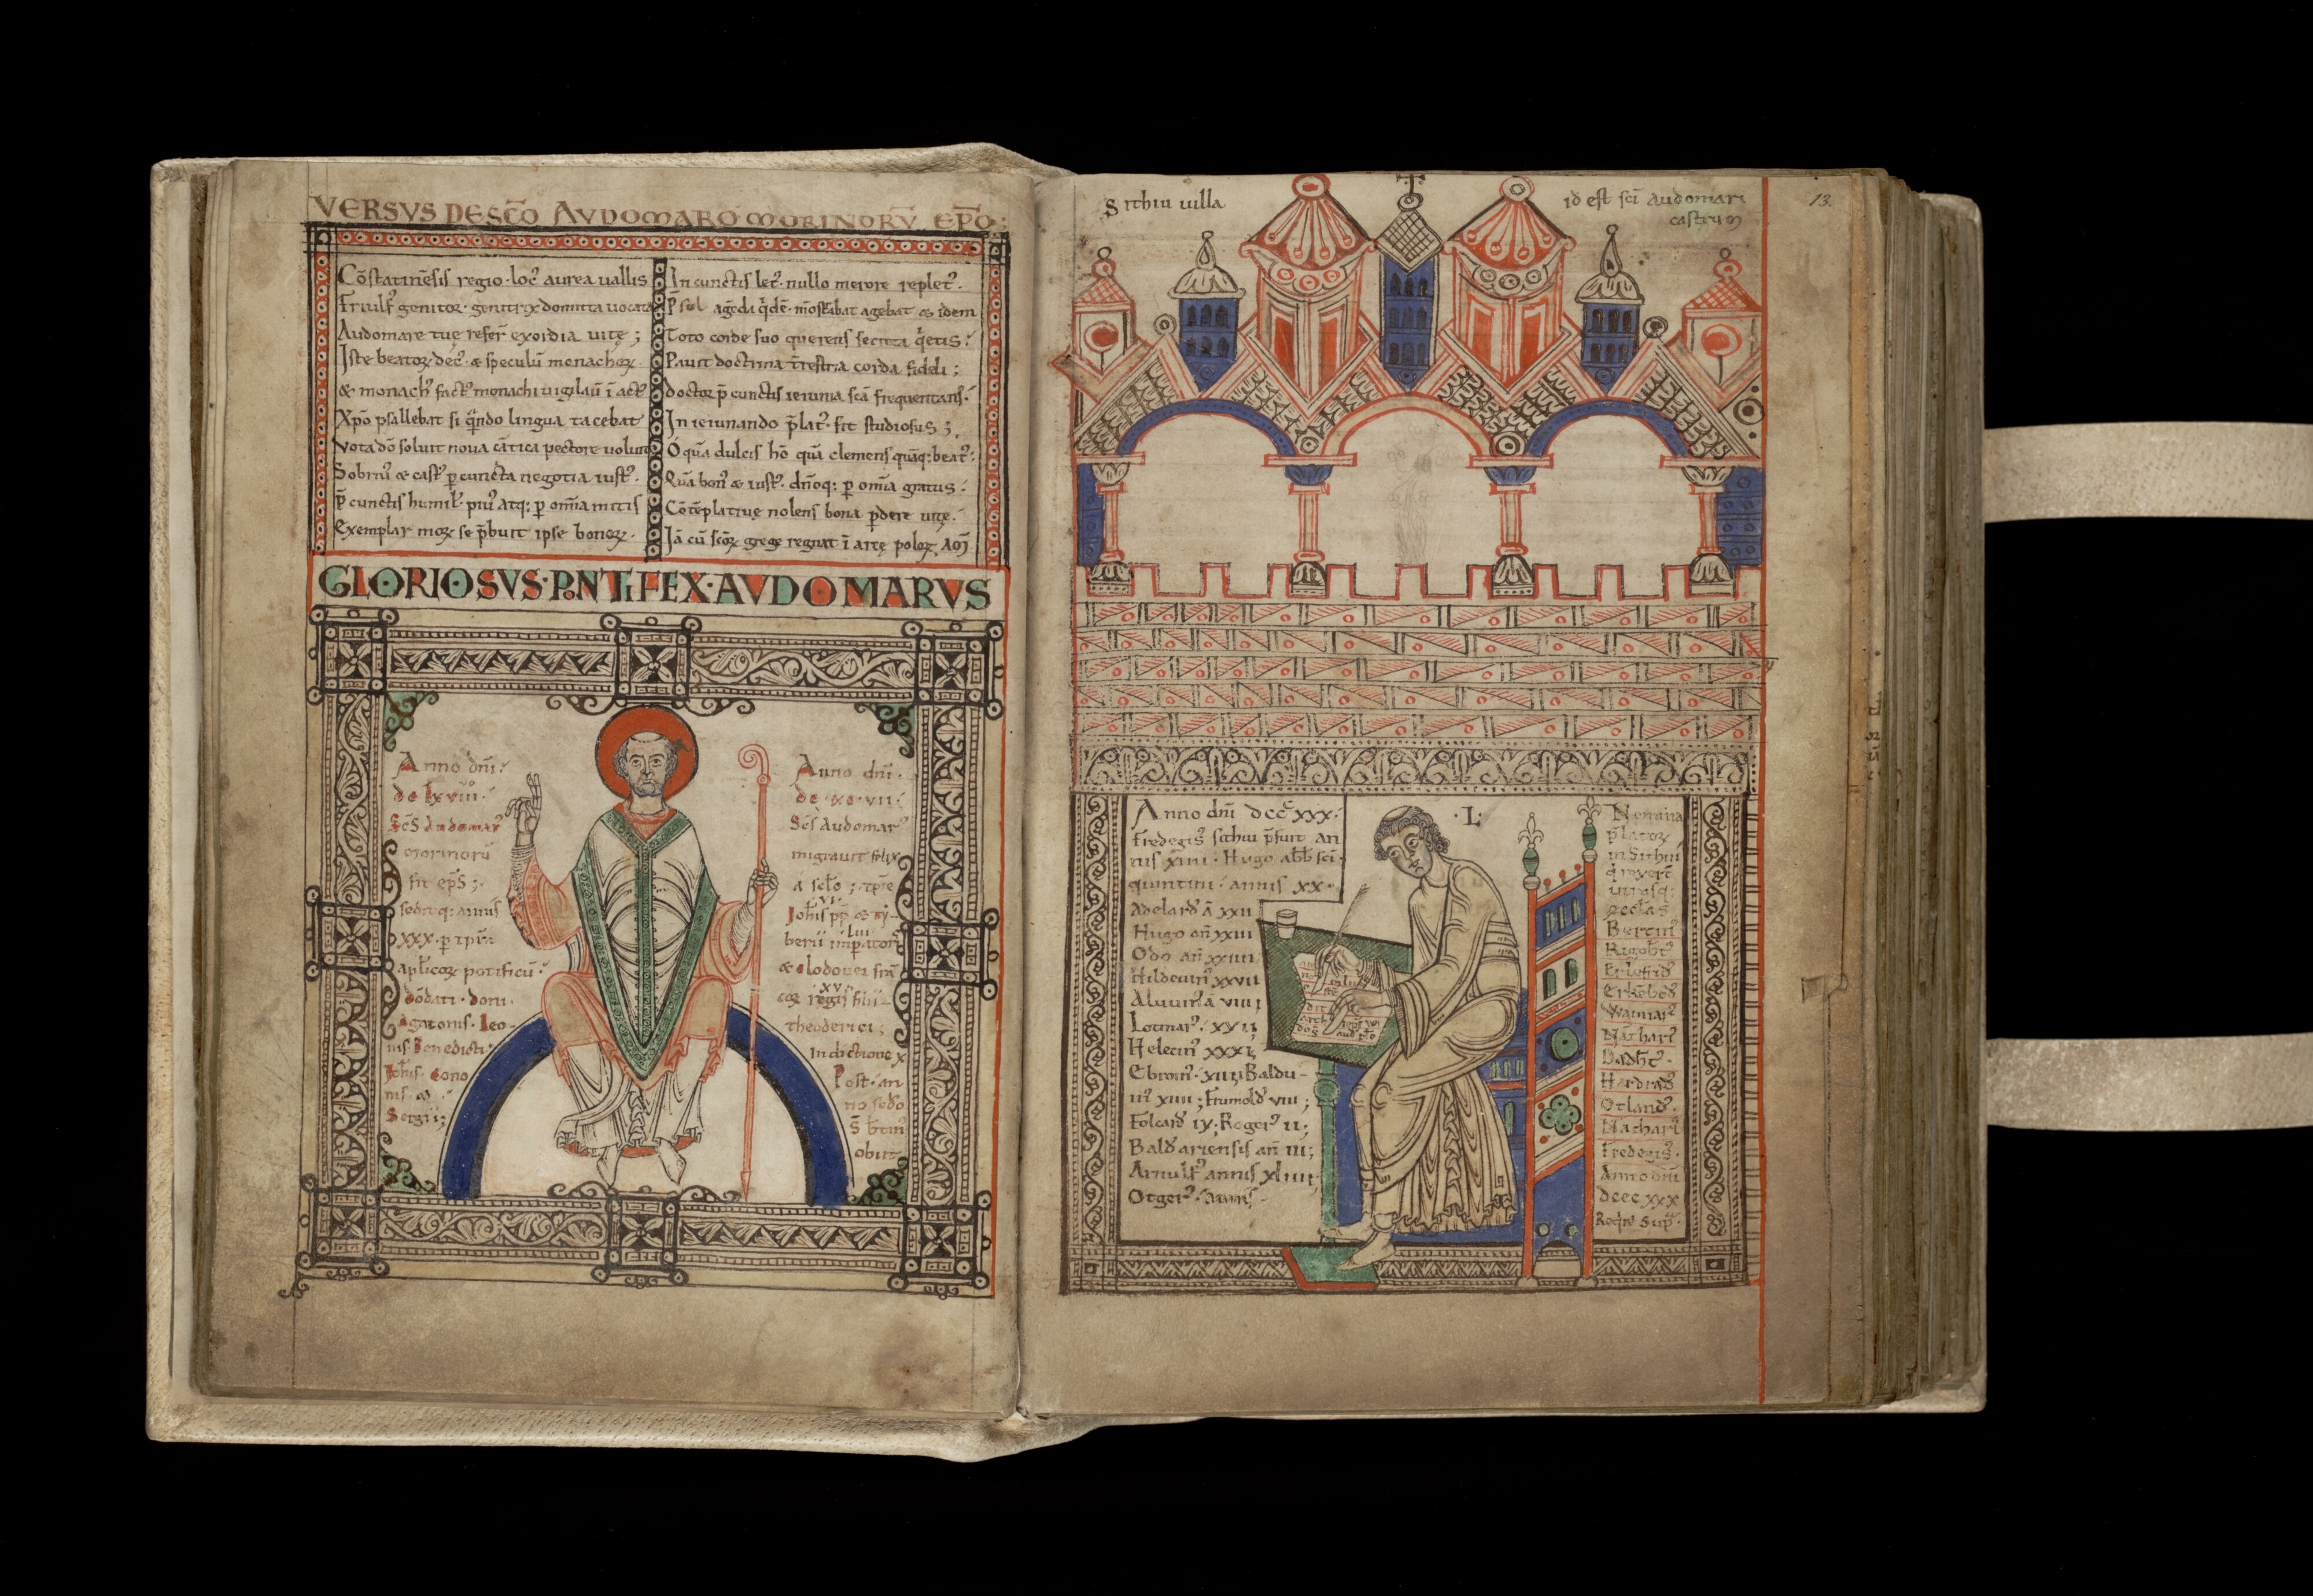 VERSVS DE SC̄O AVDOMARO MORINORV̄ EP̄O:
Cōstatinēsis regio·loc᾽ aurea uallis
Friulf᾽ genitor·genitrix domitta uocata
Audomare tuę refer̄ exordia uitę;
Iste beatoꝝ dec᾽ & speculū monachoꝝ·
& monach᾽ fact᾽ monachi uigilaū ī act᾽
Xp̄o psallebat si q̄ndo lingua tacebat
Vota dō soluit noua cātica pectore uoluit
Sobriu᾽ & cast᾽ ꝑ cuncta negotia iust᾽·
p̄ cunctis humil᾽·piu᾽ atq: ꝑ omīa mitis
Exemplar moꝝ se p̄buit ipse bonoꝝ·
In cunctis let᾽·nullo merore replet᾽·
P̄sul agēda q̄dē·mōstrabat agebat & idem
Toto corde suo querens secreta q̄etis:
Pauit doctrina t̄restria corda fideli;
doctor p̄ cunctis ieiunia scā frequentans:
In ieiunando p̄lat᾽·fit studiosus;
O quā dulcis hō quā clemens quāq: beat᾽:
Quā bon᾽ & iust᾽·dn̄oq: ꝑ omīa gratus:
Cōtēplatiuę nolens bona ꝑdere uitę·
Iā cū scōꝝ grege regnat ī arce poloꝝ AM̄
GLORIOSVS·PONTIFEX·AVDOMARVS
Anno dn̄i:
dc lxviii·
Sc̄s Audomar᾽
morinorū
fit ep̄s;
seditq: annis
XXX·ꝑ tp̄ra
apl̄icoꝝ pontificū:
dōdati·doni·
Agatonis·Leo-
nis·Benedicti·
Ioh̄is·cono
nis· &
Sergii;
Anno dn̄i·
dc·xc·vii·
Sc̄s Audomar᾽
migrauit felix
a sclo; tp̄re
Ioh̄is vi pp̄ & ty-
berii lvii imp̄ator᾽
& clodouei frā
coꝝ regis xvi filii
theoderici;
Indictione x
Post·an
no scdo
S b̄tin᾽
obiit
Sithiu uilla
id est sc̄i audomari
castrum
13.
Anno dn̄i dccc̄ xxx·
Fredegis᾽ sithiu p̄fuit an
nis xiiii·Hugo abb̄ sc̄i
quintini·annis xx·
Adelard᾽ ā xxii
Hugo an̄ xxiii
Odo an̄ xxiiii
Hilduin᾽ xxvii
Aluuin᾽ ā viiii
Lotmar᾽·xxii
Helecin᾽ xxxi;
Ebroin᾽·xiii; Baldu-
in᾽ xiiii; Frumold᾽ viii;
Folcard᾽ ix; Roger᾽ ii;
Bald᾽ ariensis an̄ iii;
Arnulf᾽ annis xliiii;
Otger᾽·annis·
·L·
Nomina
p̄latoꝝ
in Sithiu
q̄ rexer̄t
utrasq:
ęccl̄as
Bertin᾽
Rigob̄t᾽
Erlefrid᾽
Erkēbod᾽
Wamar᾽
Nāthari᾽
Dadb̄t᾽·
Hardrad᾽
Otland᾽·
Nāthari᾽
Fredegis᾽·
Anno dn̄i
dccc xxx
Req̄re sup᾽·